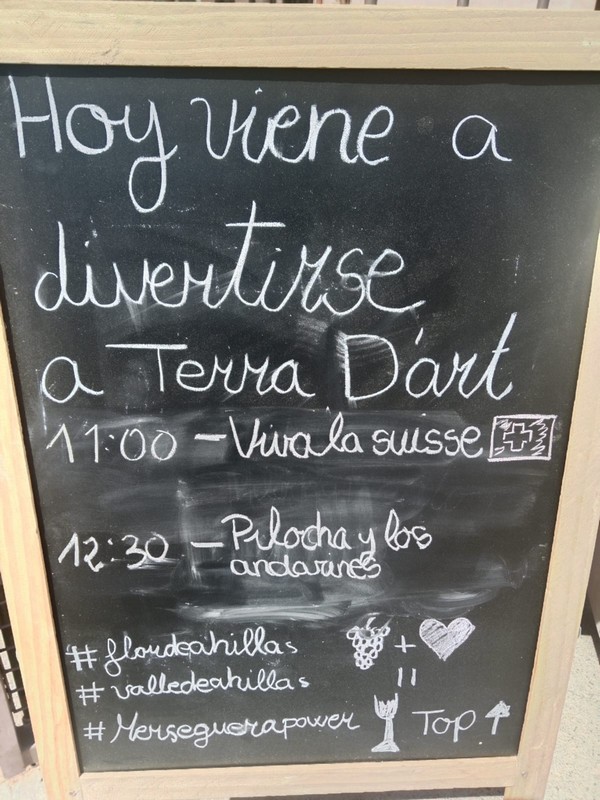 Hoy viene a
divertirse
a Terra D'art
11:00 - Viva la suisse
12:30 - Pilocha y los
andarines
#flordeahillas
#valledeahillas
#Merseguerapower
+
=
Top ↑